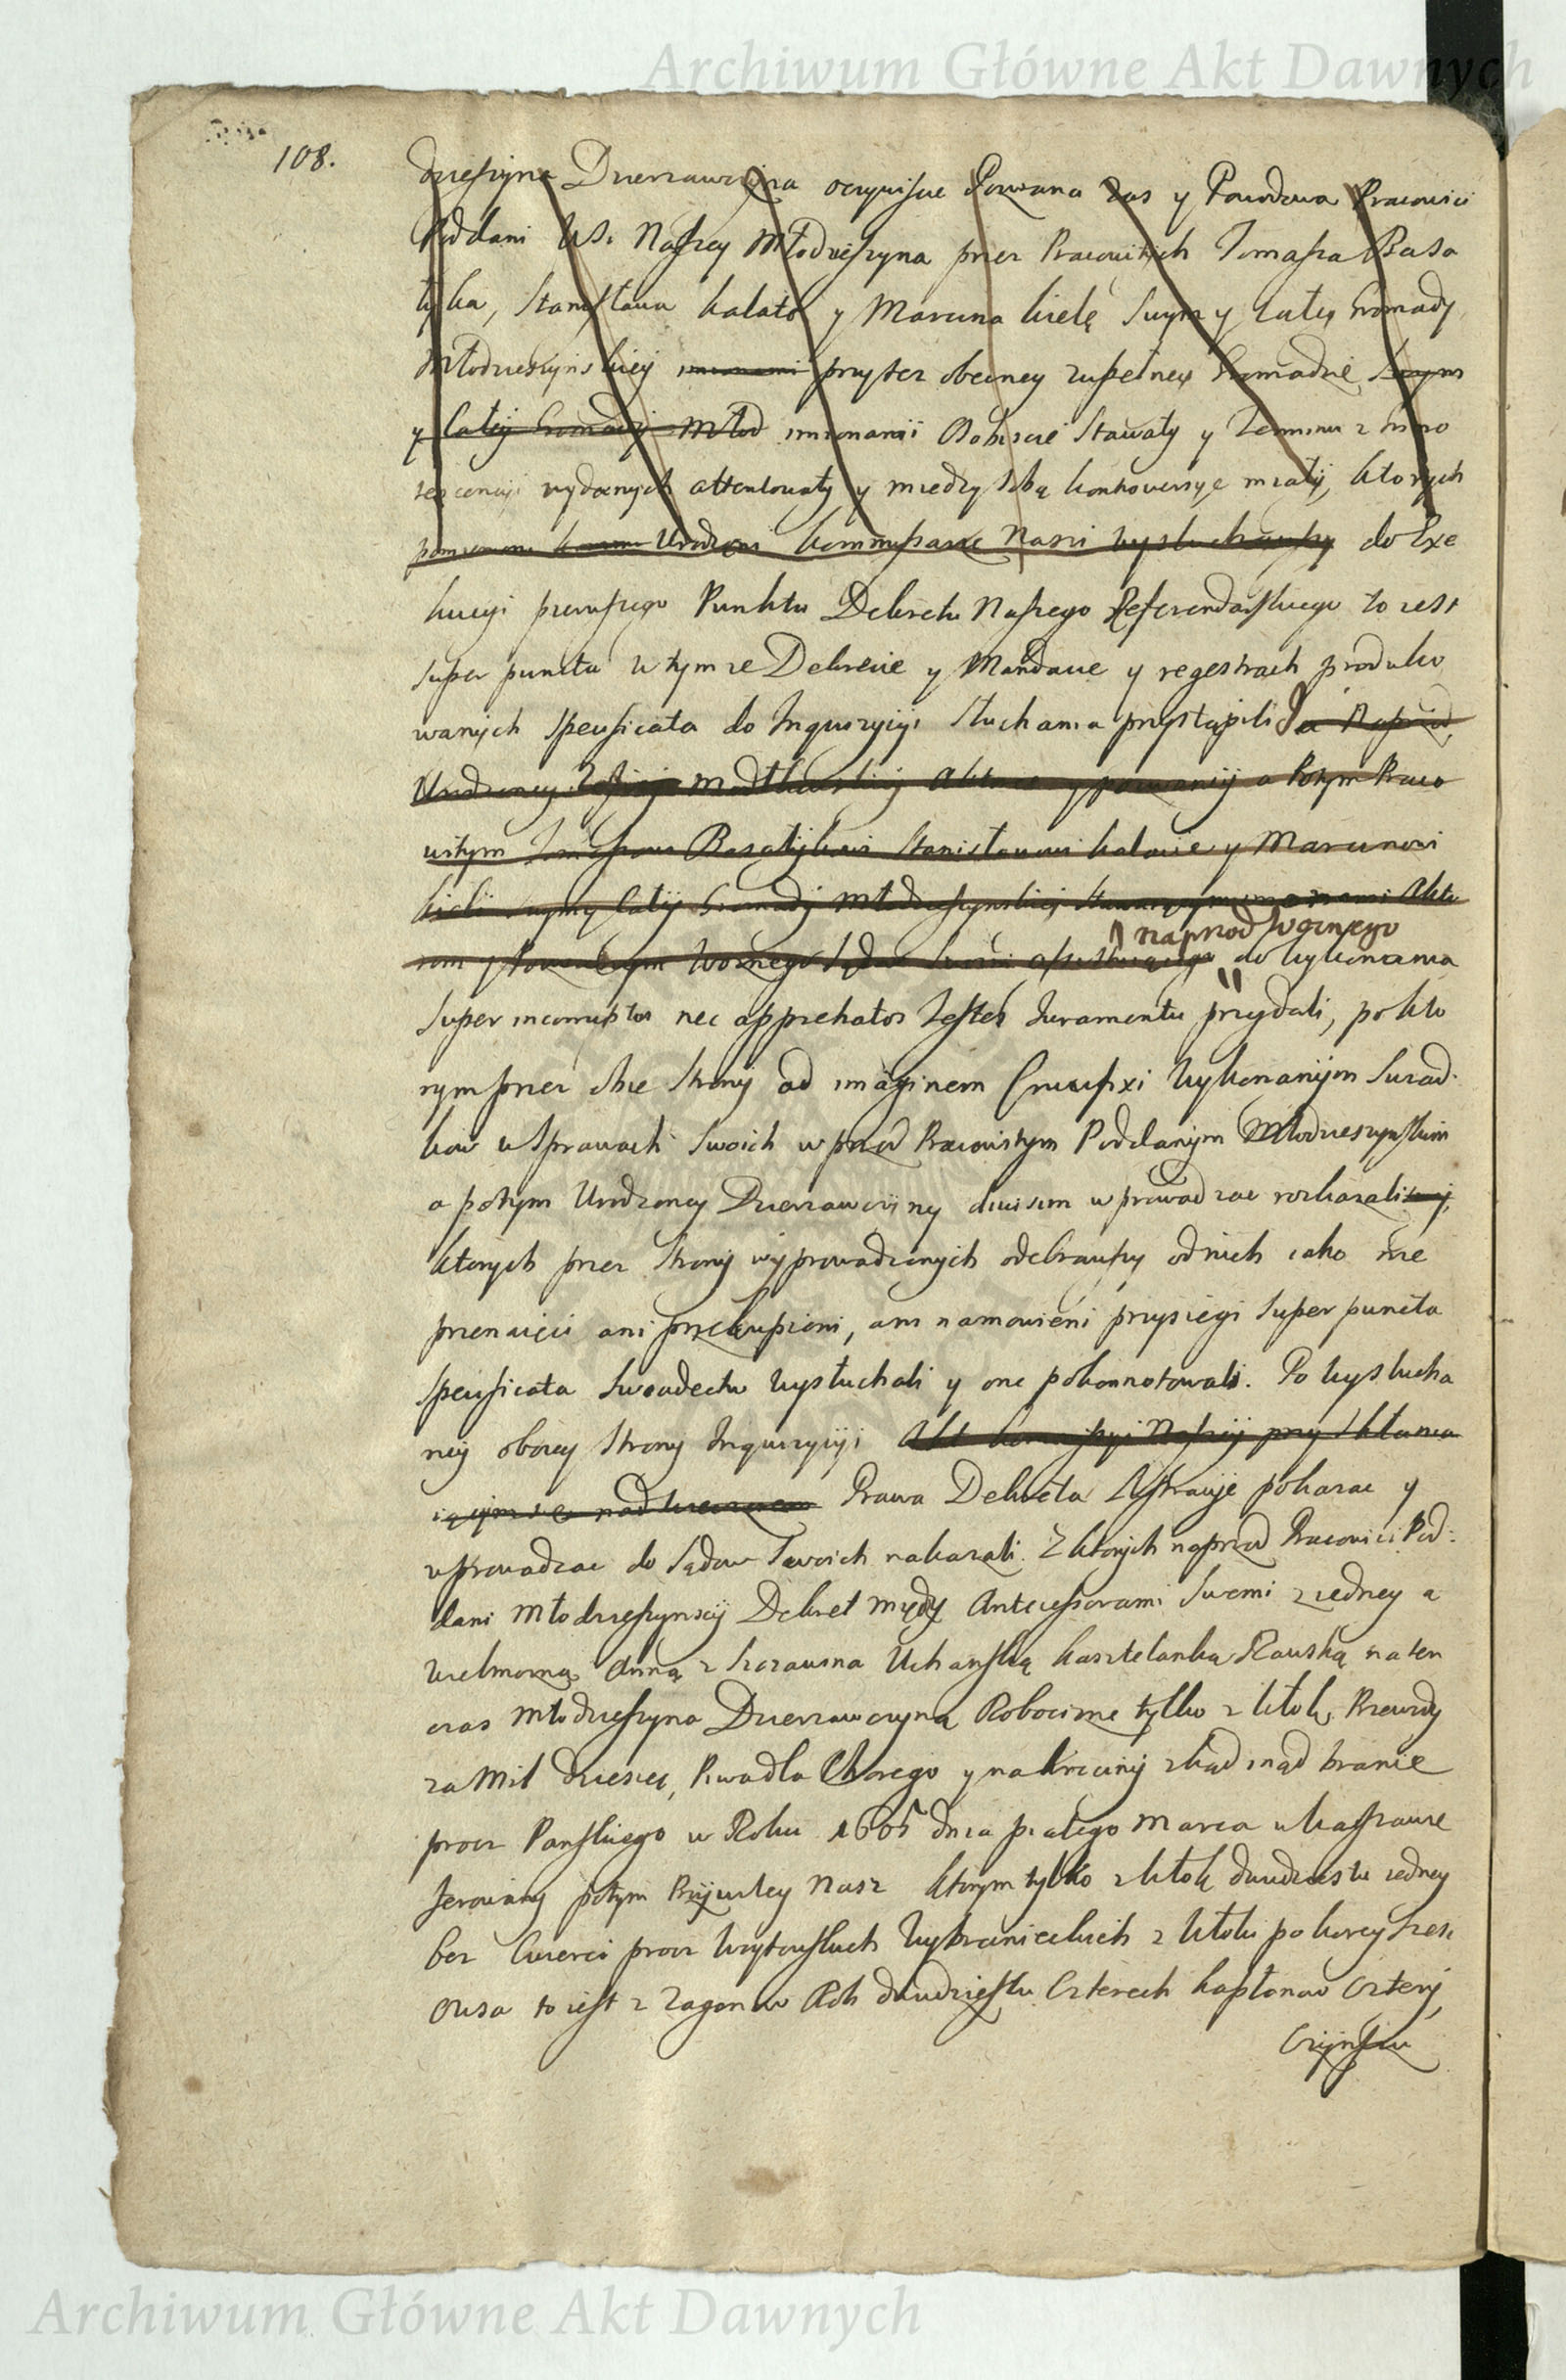 Archiwum Główne Akt Dawnych
108.
dzieszyna Dzierzawczyna oczywiscie Pozwana zas y Powodowa Pracowici
Poddani Wsi Naszey Młodzieszyna przez Pracowitych Tomasza Basa
tyka, Stanisława Kałato y Marcina Kielę Swym y całey Gromady
Młodzieszynskiey imionami przytez obecney zupełney Gromadzie Swym
y całey Gromady Młod imionami Osobiscie Stawały y Termina z Inno
tescencyi wydanych attentowały y miedzy sobą kontrowersye miały, ktorych
Urodzeni Kommissarze Nasi wysłuchawszy do Exe
kucyi pierwszego Punktu Dekretu Naszego Referendarskiego to iest
super puncta w tymze Dekrecie y Mandacie y regestrach produko
wanych specificata do Inquizycyi słuchania przystąpili a Naprzod
Urodzoney Zofiey Modtkowskiey Aktorce y pozwaney a Potym Praco
witym Tomaszowi Basatykowi Stanisławowi Kałacie y Marcinowi
Kieli swym y całey Gromady Młodzieszynskiey imionami Akto
rom y Pozwanym Woznego Sądow do wykonania
naprzod Woznego
super incorruptos nec apprehatos Testes Juramentu przydali, po kto
rym przez obie Strony ad imaginem Crucifixi wykonanym Swiad
kow w Sprawach Swoich wprzod Pracowitym Poddanym Młodzieszynskim
a potym Urodzoney Dzierzawczyny divisim wprowadzac rozkazali
ktorych przez Strony wyprowadzonych odebrawszy od nich iako nie
przenaięci ani przekupieni, ani namowieni przysięgi super puncta
specificata Swiadectw wysłuchali y one pokonnotowali. Po wysłucha
ney oboiey Strony Inquizycyi Akt Kommissyi Naszey przy
Prawa Dekreta Lustracye pokazac y
wprowadzac do Sądow Swoich nakazali. Z ktorych naprzod Pracowici Pod
dani Młodzieszynscy Dekret między Antecessorami Swemi z iedney a
Wielmozną Anną z Szczawina Uchanską Kasztelanką Rawską na ten
czas Młodzieszyna Dzierzawczyną Robocizne tylko z Włok, Przewozy
za Mil dziesięc, Prwadła Chorego y na Krzciny zkąd inąd branie
procz Panskiego w Roku 1605 dnia piątego Marca w Warszawie
ferowany potym Przywiley Nasz ktorym tylko z Włok dwudziestu iedney
bez cwierci procz Woytowskich Wybranieckich z Włoki po korcy szesc
Owsa to iest z Zagonow Roli dwudziestu Czterech Kapłonow Cztery,
Czynszu
Archiwum Główne Akt Dawnych